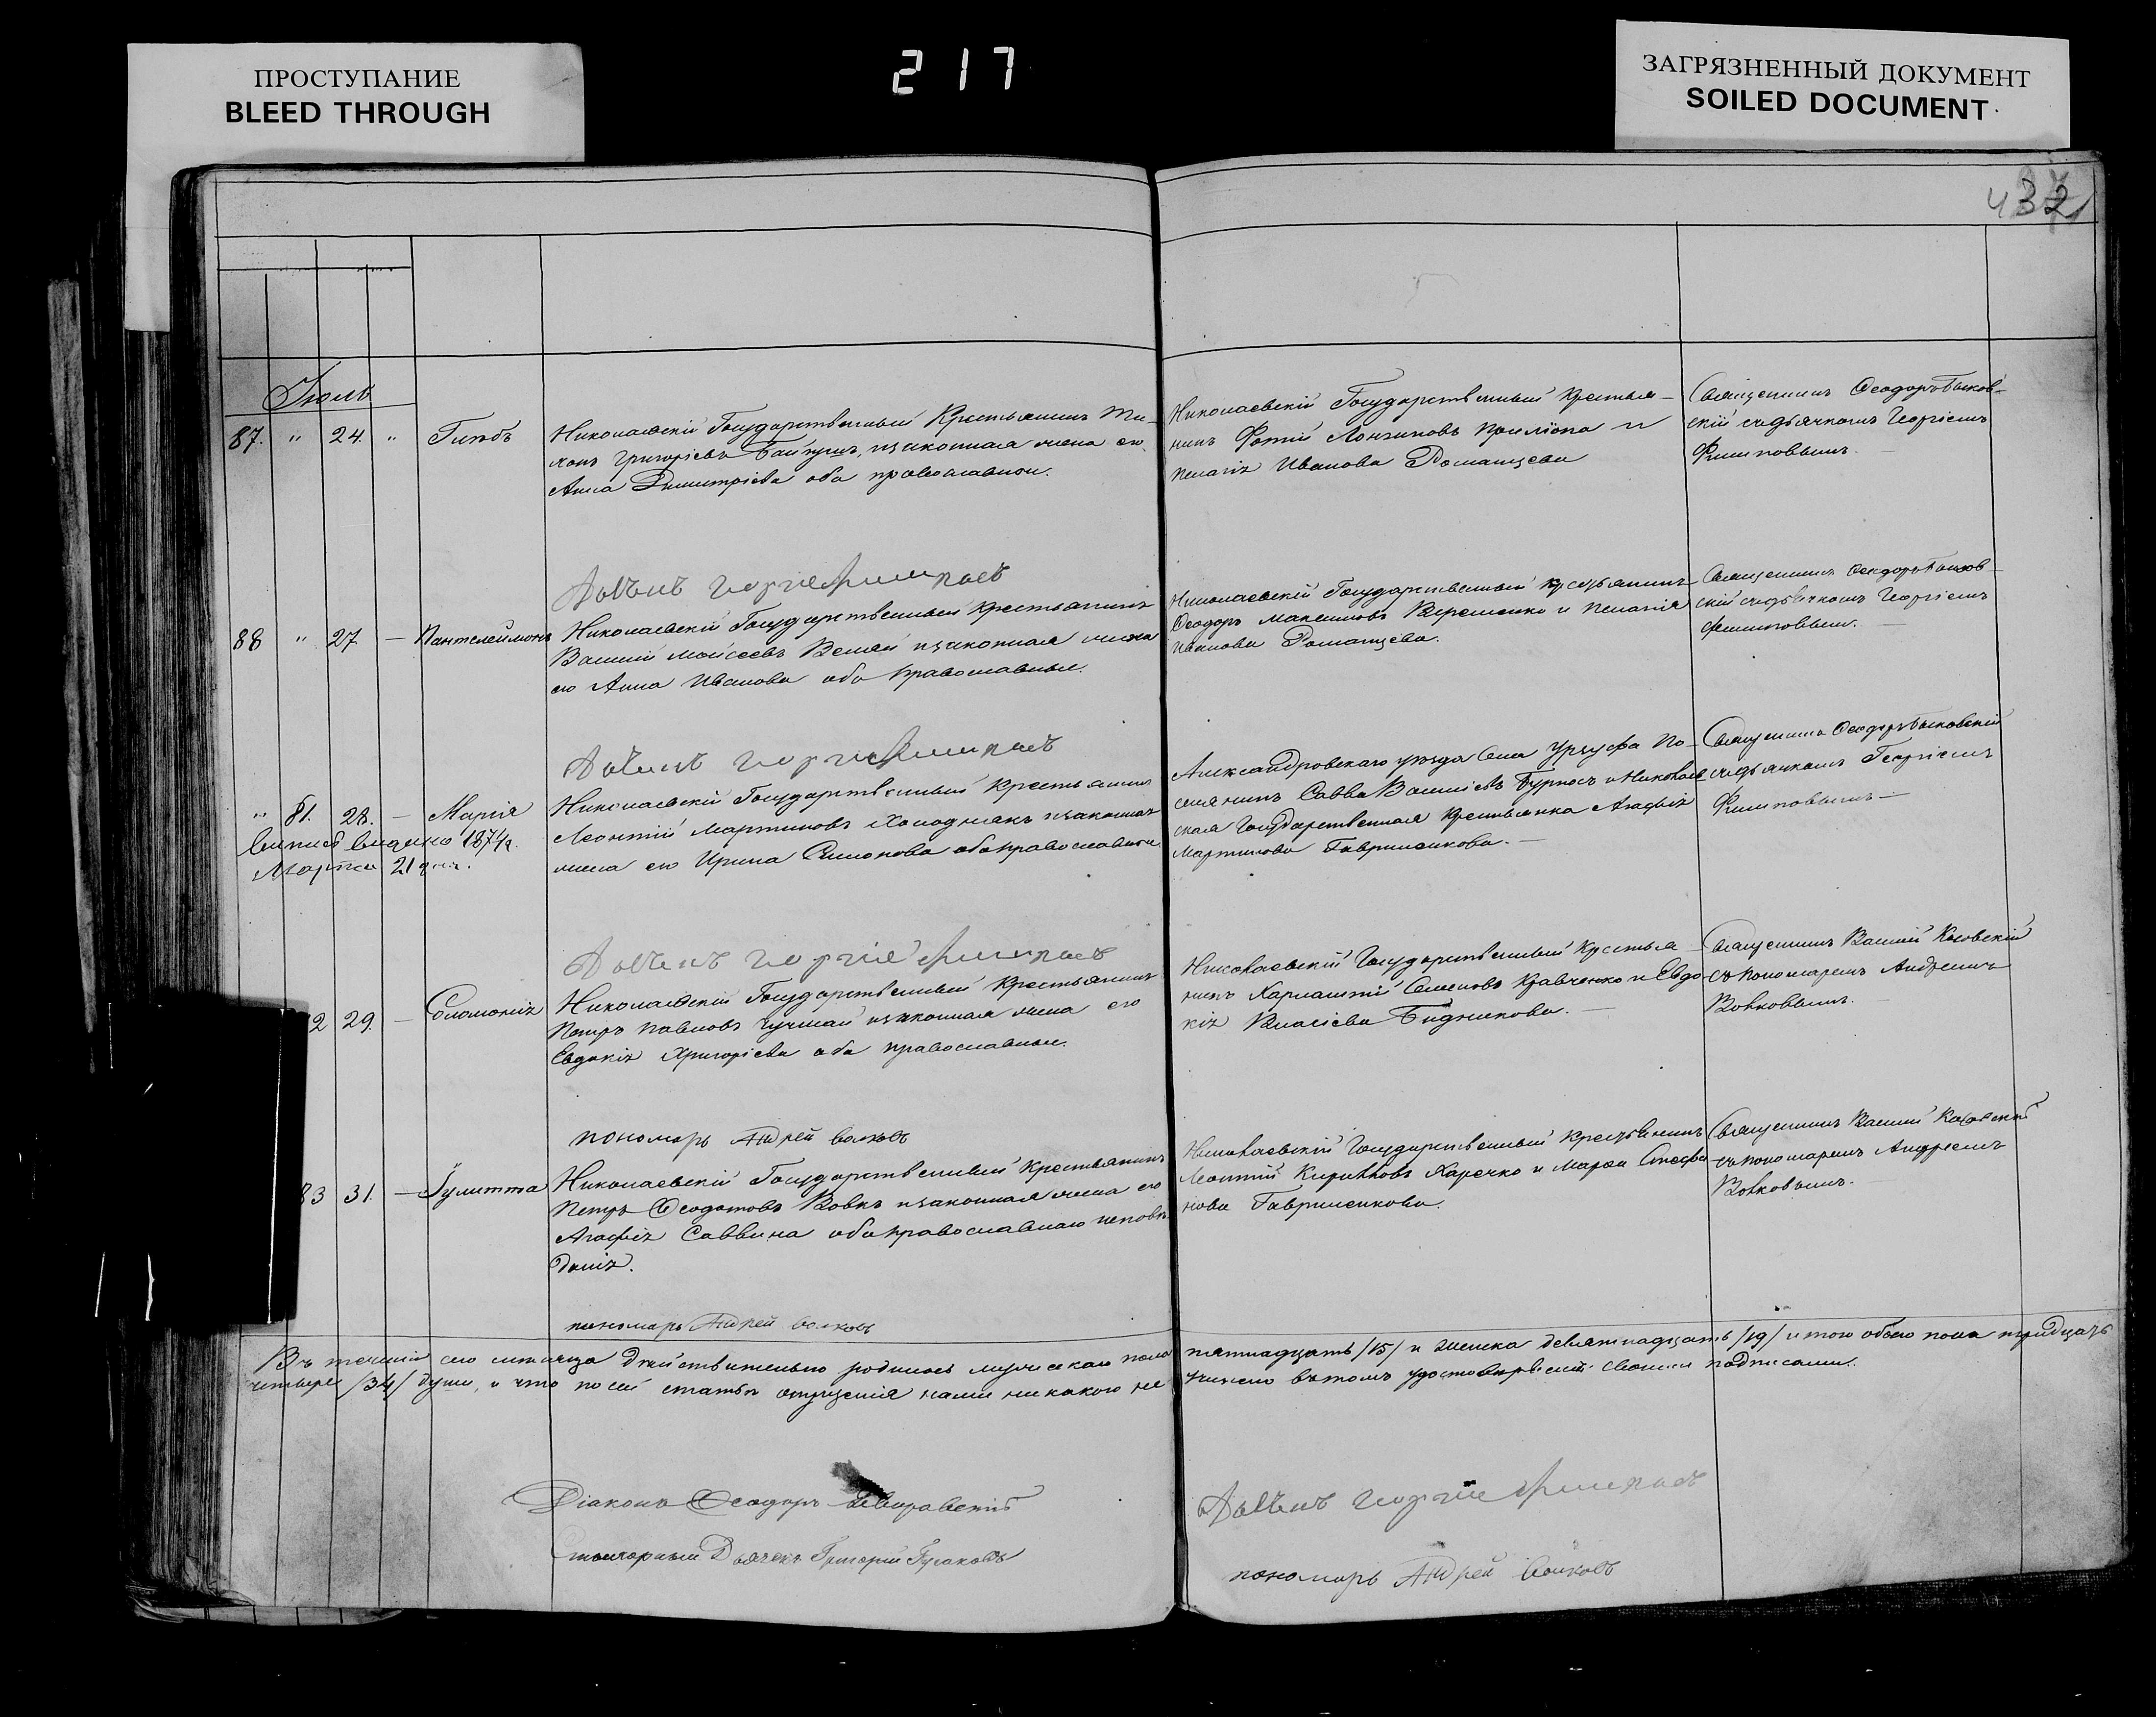 ПРОСТУПАНИЕ
BLEED THROUGH
217
ЗАГРЯЗНЕННЫЙ ДОКУМЕНТ
SOILED DOCUMENT
432
Іюль
87. " 24. " Глѣбъ
Николаевскій Государственный Крестьянинъ Ти-
Григорієвъ и законная жена его
Анна Димитріева оба православнои.
Николаевскій Государственный Крестья-
нинъ Фотій Лонгиновъ и
Пелагія Иванова Романцева
Священникъ Ѳеодоръ Быков-
скій съ дьячкомъ Георгіемъ
Филиповымъ.
Дьячекъ Георгіе Филиповъ
88 " 27 — Пантелеймонъ
Николаевскій Государственный Крестьянинъ
Василій Моисеевъ и законная жена
его Анна Иванова оба православные.
Николаевскій Государственный крестьянинъ
Ѳеодоръ Максимовъ Веременко и Пелагія
Иванова Романцева.
Священникъ Ѳеодоръ Быков-
скій съ дьячкомъ Георгіемъ
Филиповым.
Дьячекъ Георгіе Филиповъ
" 81. 28. — Марія
выпись выдана 1874 г.
Марта 21 дня.
Николаевскій Государственный Крестьянинъ
Леонтій Мартиновъ Холоднякъ и законная
жена его Ирина Симонова оба православнои
Александровскаго уѣзда Села Урзуфа По-
селянинъ Савва Василіевъ Бурносъ и Николаев-
ская Государственная Крестьянка Агафія
Мартинова Гавриленкова.
Священникъ Ѳеодоръ Быковскій
съ дьячкомъ Георгіемъ
Филиповымъ
Дьячекъ Георгіе Филиповъ
2 29. — Соломонія
Николаевскій Государственный Крестьянинъ
Петръ Павловъ и законная жена его
Евдокія Григорієва оба православные.
Николаевскій Государственный Крестья-
нинъ Харлампій Семеновъ Кравченко и Евдо-
кія Власіева Бидникова.
Священникъ Василій Косовскій
съ пономаремъ Андреемъ
Вовковымъ.
пономарь Андрей Волковъ
83 31. — Іулитта
Николаевскій Государственный Крестьянинъ
Петръ Ѳеодотовъ Вовкъ и законная жена его
Агафія Саввина оба православнаго исповѣ-
данія.
Николаевскій Государственный Крестьянинъ
Леонтій Кириловъ Харечко и Марѳа Стефа-
нова Гавриленкова.
Священникъ Василій Косовскій
съ пономаремъ Андреемъ
Вовковымъ.
пономарь Андрей Волковъ
Въ теченіи сего мѣсяца дѣйствительно родилось мужескаго пола пятнадцать /15/ и женска девятнадцать /19/ итого обоего пола тридцать
четыре /34/ души, и что по сей статьѣ опущенія нами никакого не учинено въ томъ удостовѣряемъ своими подписами.
Діаконъ Ѳеодоръ
Дьячекъ Григорій Гусаковъ
Дьячекъ Георгіе Филиповъ
пономарь Андрей Волковъ